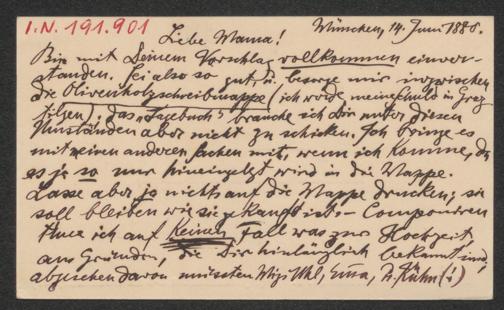 I.N. 191.901
München, 14. Juni 1886.
Liebe Mama!
Bin mit Deinem Vorschlag vollkommen einver-
standen. Sei also so gut, u. besorge mir inzwischen
die Olivenholzschreibmappe (ich werde meine Schuld in Graz
tilgen); das „Tagebuch" brauche ich Dir unter diesen
Umständen aber nicht zu schicken. Ich bringe es
mit meinen anderen Sachen mit, wenn ich komme, da
es ja so nur hineingelegt wird in die Mappe.
Lasse aber ja nichts auf die Mappe drucken; sie
soll bleiben wie sie gekauft ist. – Componiren
thue ich auf keinen Fall was zur Hochzeit,
aus Gründen, die Dir hinlänglich bekannt sind,
abgesehen davon müssten